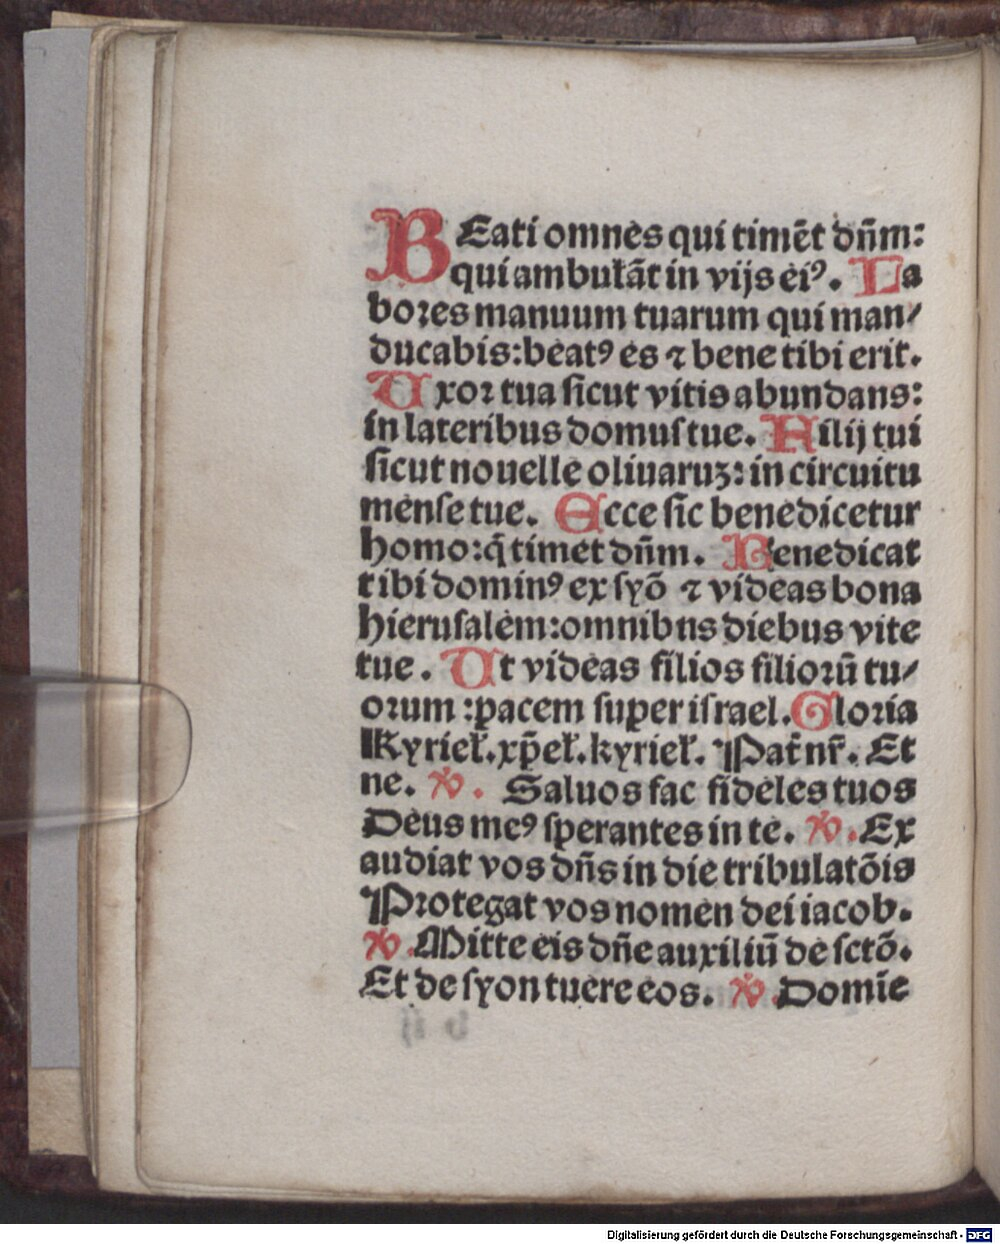 BEati omnes qui timēt dn̄m:
qui ambulāt in vijs eiꝰ. La
bores manuum tuarum qui man/
ducabis: beatꝰ es ⁊ bene tibi erit.
Uxor tua sicut vitis abundans:
in lateribus domus tue. Filij tui
sicut nouelle oliuaruꝫ: in circuitu
mense tue. Ecce sic benedicetur
homo: q̄ timet dn̄m. Benedicat
tibi dominꝰ ex syō ⁊ videas bona
hierusalem: omnibus diebus vite
tue. Ut videas filios filiorū tu/
orum: pacem super israel. Gloria
Kyriel̄. xp̄el̄. kyriel̄. Pat̄ nr̄. Et
ne. ℣. Saluos fac fideles tuos
Deus meꝰ sperantes in te. ℣. Ex
audiat vos dn̄s in die tribulatōis
Protegat vos nomen dei iacob.
℣. Mitte eis dn̄e auxiliū de sctō.
Et de syon tuere eos. ℣. Domīe
Digitalisierung gefördert durch die Deutsche Forschungsgemeinschaft - DFG